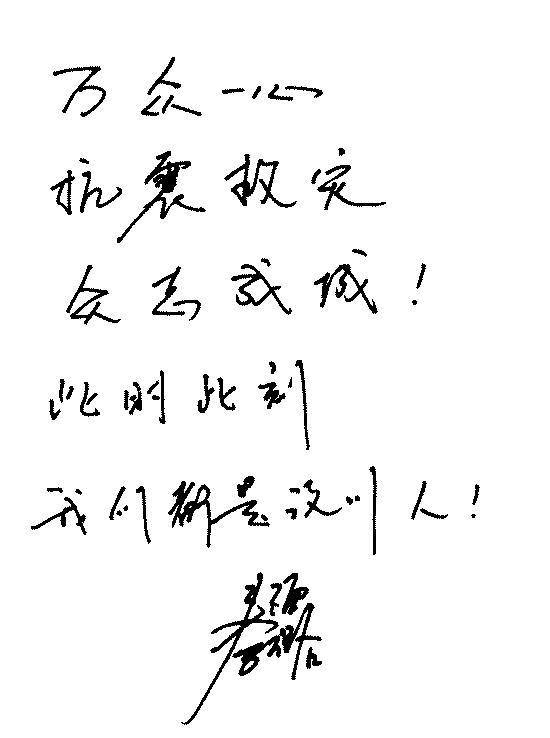 万众一心
抗震救灾
众志成城！
此时此刻
我们都是汶川人！